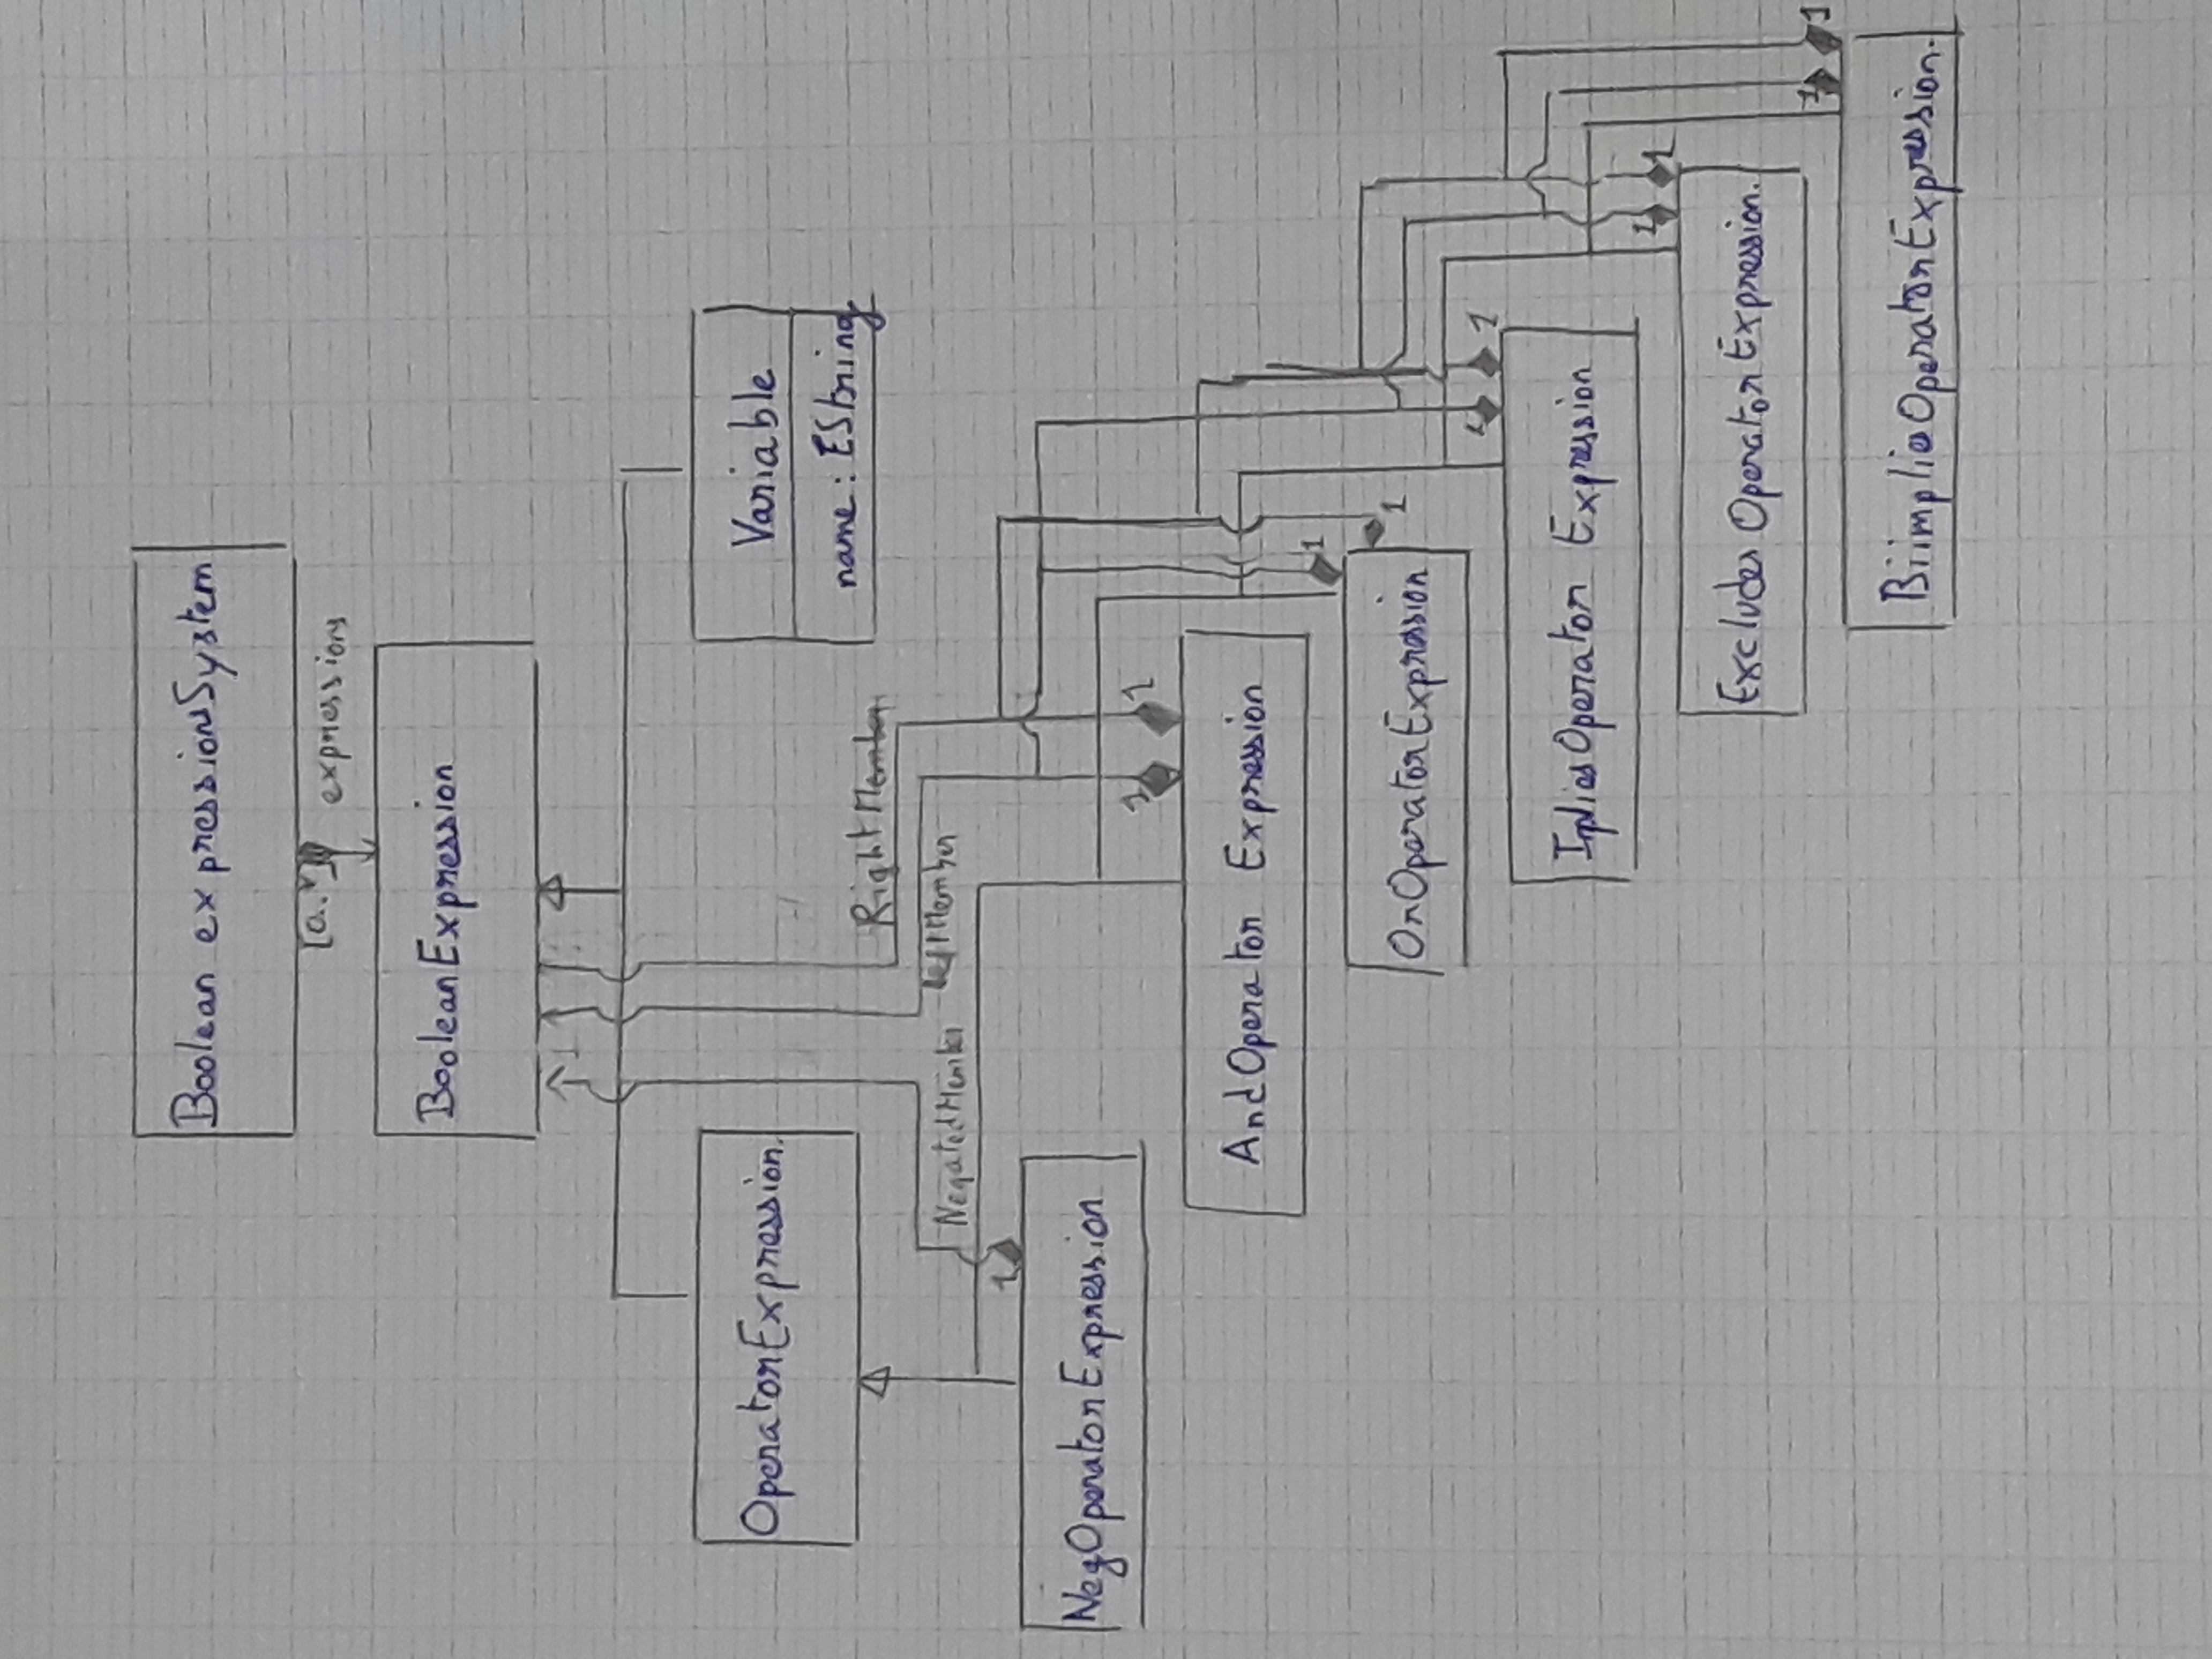 Boolean expressionsSystem
expressions
BooleanExpression
OperatorExpression.
Variable
name: EString
RightMember
NegatedMember
leftMember
1
NegOperatorExpression
1
1
AndOperator Expression
1
OrOperatorExpression
1
1
1
ImpliesOperator Expression
1
1
Excludes OperatorExpression.
1
1
BiimpliesOperatorExpression.